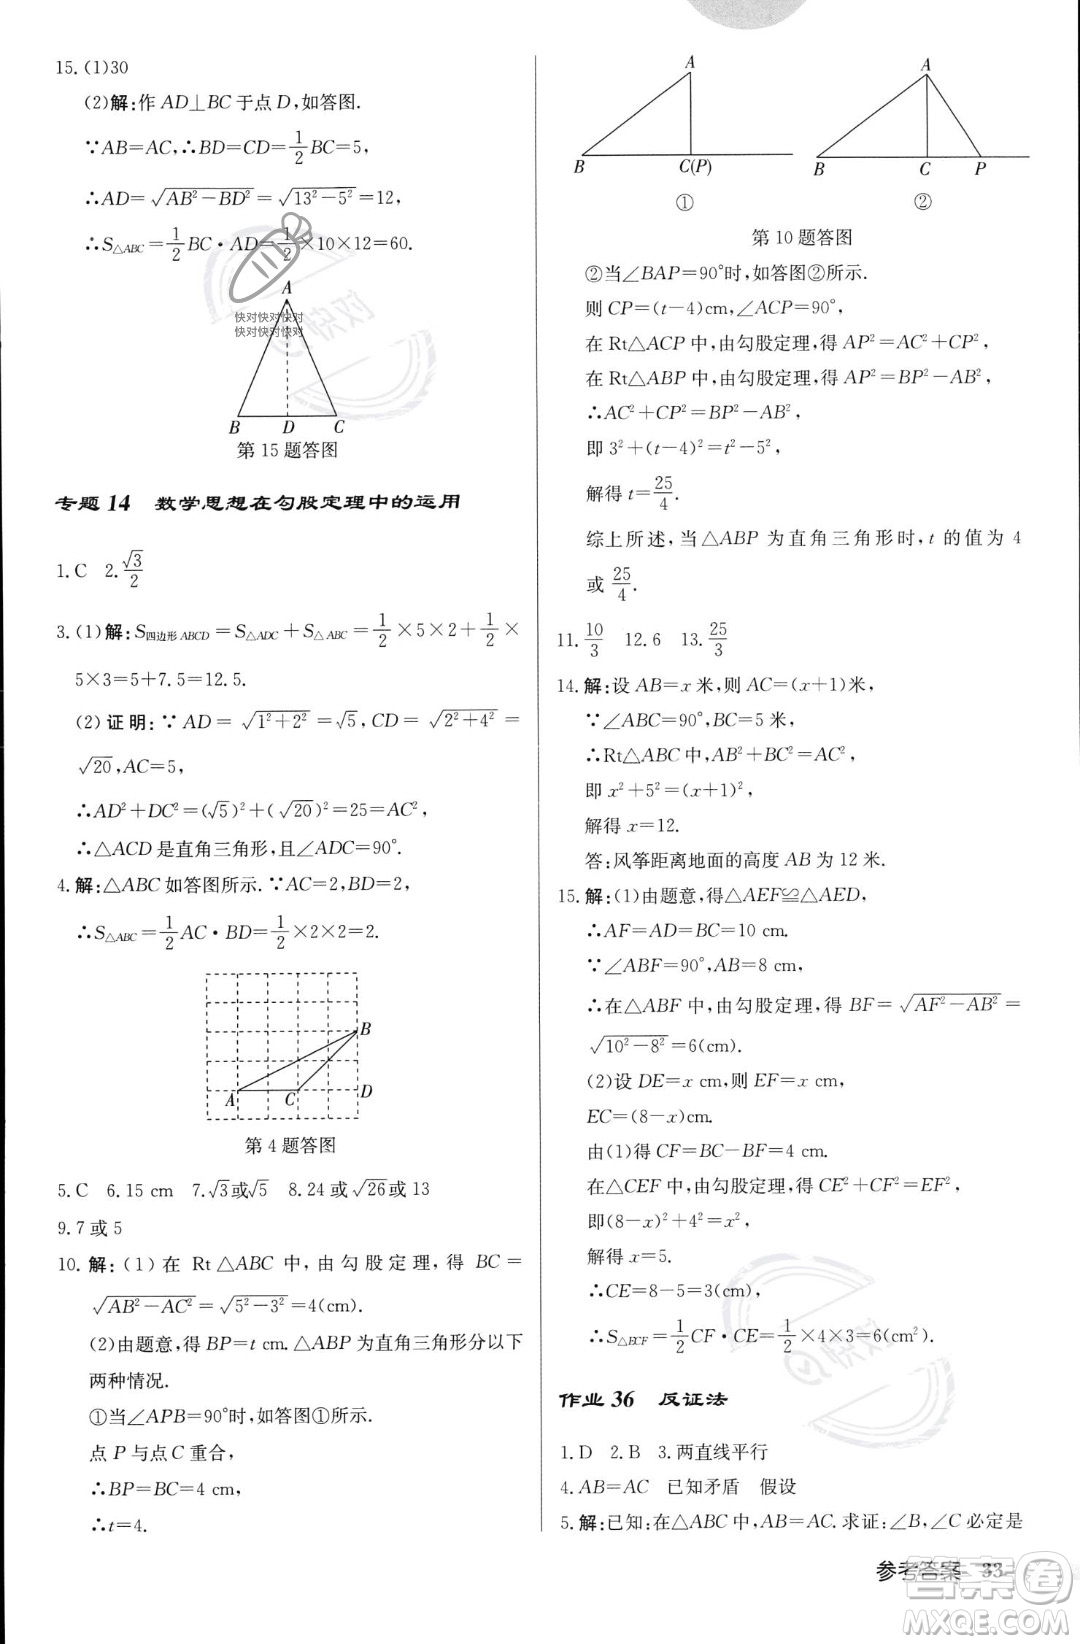 15. (1)30
(2)解:作 AD⊥BC 于点 D,如答图.
∵AB=AC,∴BD=CD=1/2BC=5,
∴AD=√(AB²－BD²)=√(13²－5²)=12,
∴S△ABC=1/2BC·AD=1/2×10×12=60.
A
快对快对快对
快对快对快对
B D C
第 15 题答图
专题 14 数学思想在勾股定理中的运用
1. C 2. √3/2
3. (1)解:S四边形ABCD=S△ADC+S△ABC=1/2×5×2+1/2×
5×3=5+7.5=12.5.
(2)证明:∵AD=√(1²+2²)=√5,CD=√(2²+4²)=
√20,AC=5,
∴AD²+DC²=(√5)²+(√20)²=25=AC²,
∴△ACD 是直角三角形,且∠ADC=90°.
4. 解:△ABC 如答图所示.∵AC=2,BD=2,
∴S△ABC=1/2AC·BD=1/2×2×2=2.
B
A C D
第 4 题答图
5. C 6. 15 cm 7. √3或√5 8. 24 或√26或 13
9. 7 或 5
10. 解:(1)在 Rt△ABC 中,由勾股定理,得 BC=
√(AB²－AC²)=√(5²－3²)=4(cm).
(2)由题意,得 BP=t cm.△ABP 为直角三角形分以下
两种情况.
①当∠APB=90°时,如答图①所示.
点 P 与点 C 重合,
∴BP=BC=4 cm,
∴t=4.
A A
B C(P) B C P
① ②
第 10 题答图
②当∠BAP=90°时,如答图②所示.
则 CP=(t－4)cm,∠ACP=90°,
在 Rt△ACP 中,由勾股定理,得 AP²=AC²+CP²,
在 Rt△ABP 中,由勾股定理,得 AP²=BP²－AB²,
∴AC²+CP²=BP²－AB²,
即 3²+(t－4)²=t²－5²,
解得 t=25/4.
综上所述,当△ABP 为直角三角形时,t 的值为 4
或 25/4.
11. 10/3 12. 6 13. 25/3
14. 解:设 AB=x 米,则 AC=(x+1)米,
∵∠ABC=90°,BC=5 米,
∴Rt△ABC 中,AB²+BC²=AC²,
即 x²+5²=(x+1)²,
解得 x=12.
答:风筝距离地面的高度 AB 为 12 米.
15. 解:(1)由题意,得△AEF≌△AED,
∴AF=AD=BC=10 cm.
∵∠ABF=90°,AB=8 cm,
∴在△ABF 中,由勾股定理,得 BF=√(AF²－AB²)=
√(10²－8²)=6(cm).
(2)设 DE=x cm,则 EF=x cm,
EC=(8－x)cm.
由(1)得 CF=BC－BF=4 cm.
在△CEF 中,由勾股定理,得 CE²+CF²=EF²,
即(8－x)²+4²=x²,
解得 x=5.
∴CE=8－5=3(cm),
∴S△ECF=1/2CF·CE=1/2×4×3=6(cm²).
作业 36 反证法
1. D 2. B 3. 两直线平行
4. AB=AC 已知矛盾 假设
5. 解:已知:在△ABC 中,AB=AC. 求证:∠B,∠C 必定是
参考答案 33
答案卷
MXQE.COM